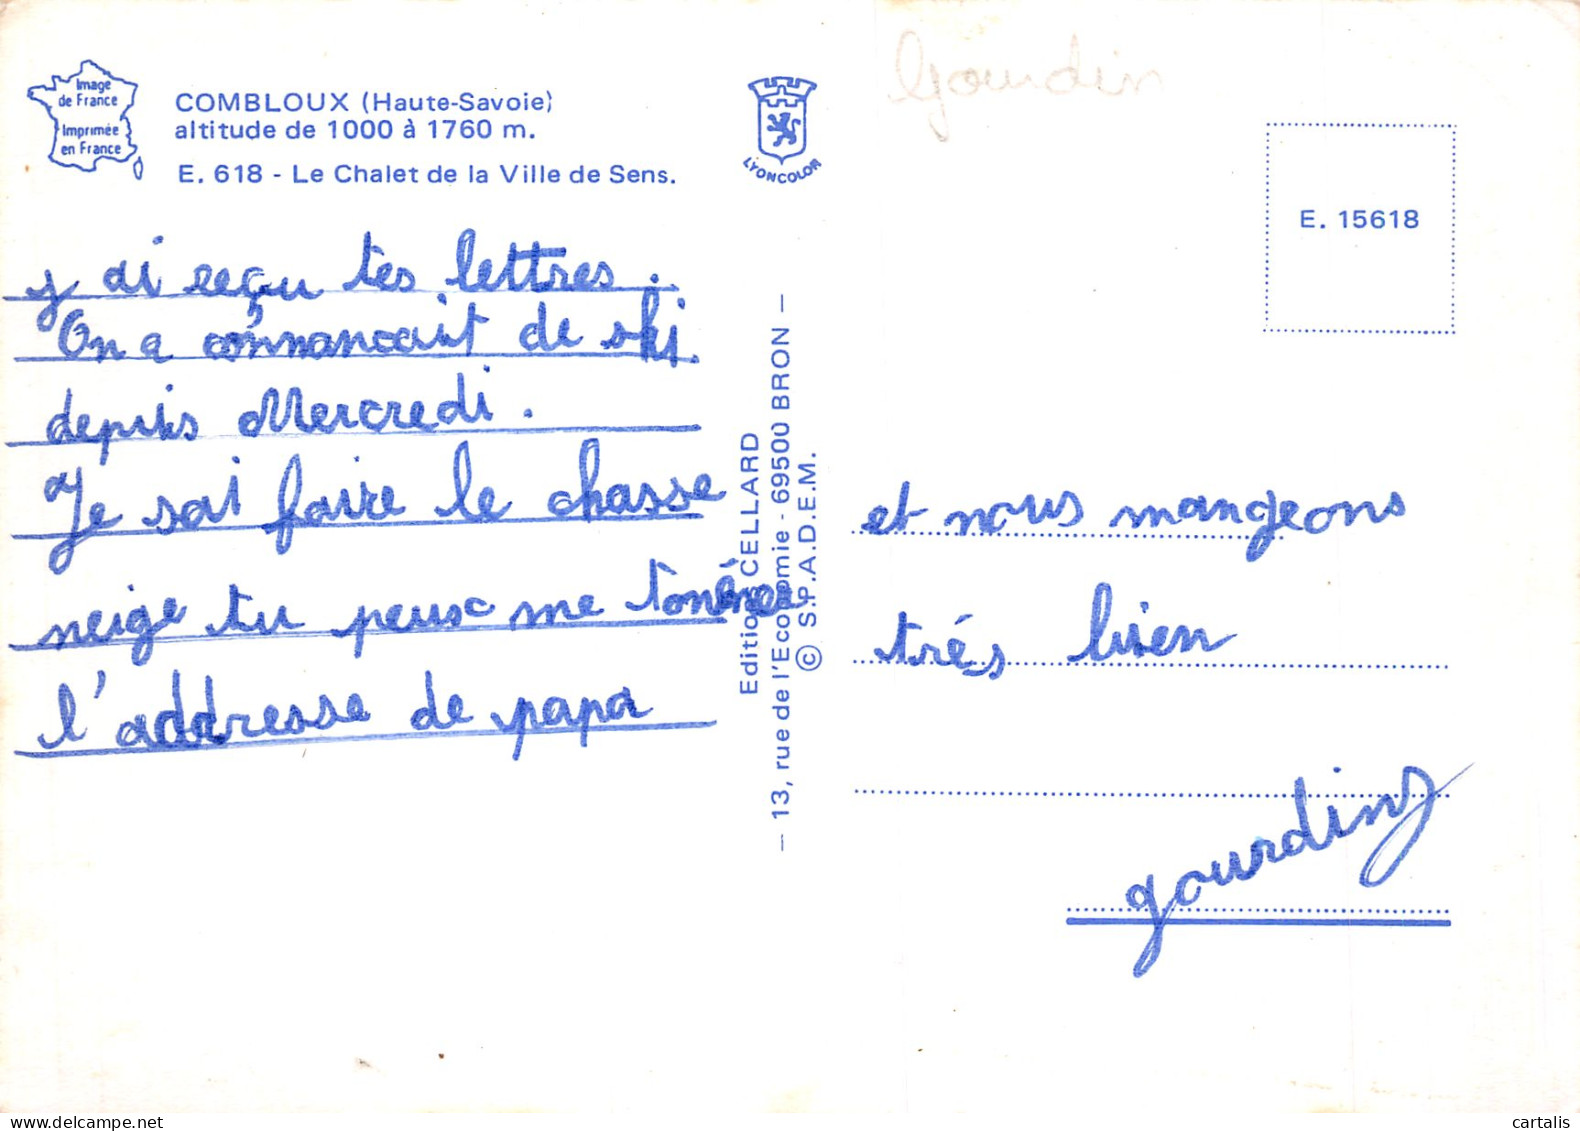 Image
de France
Imprimée
en France
COMBLOUX (Haute-Savoie)
altitude de 1000 à 1760 m.
E. 618 - Le Chalet de la Ville de Sens.
LYONCOLOR
Gourdin
E. 15618
j ai reçu tes lettres.
On a connancait de ski
depuis Mercredi.
Je sai faire le chasse
neige tu peux me
l'addresse de papa
Editions CELLARD
— 13, rue de l'Economie - 69500 BRON —
© S.P.A.D.E.M.
et nous mangeons
trés bien
gourding
cartalis